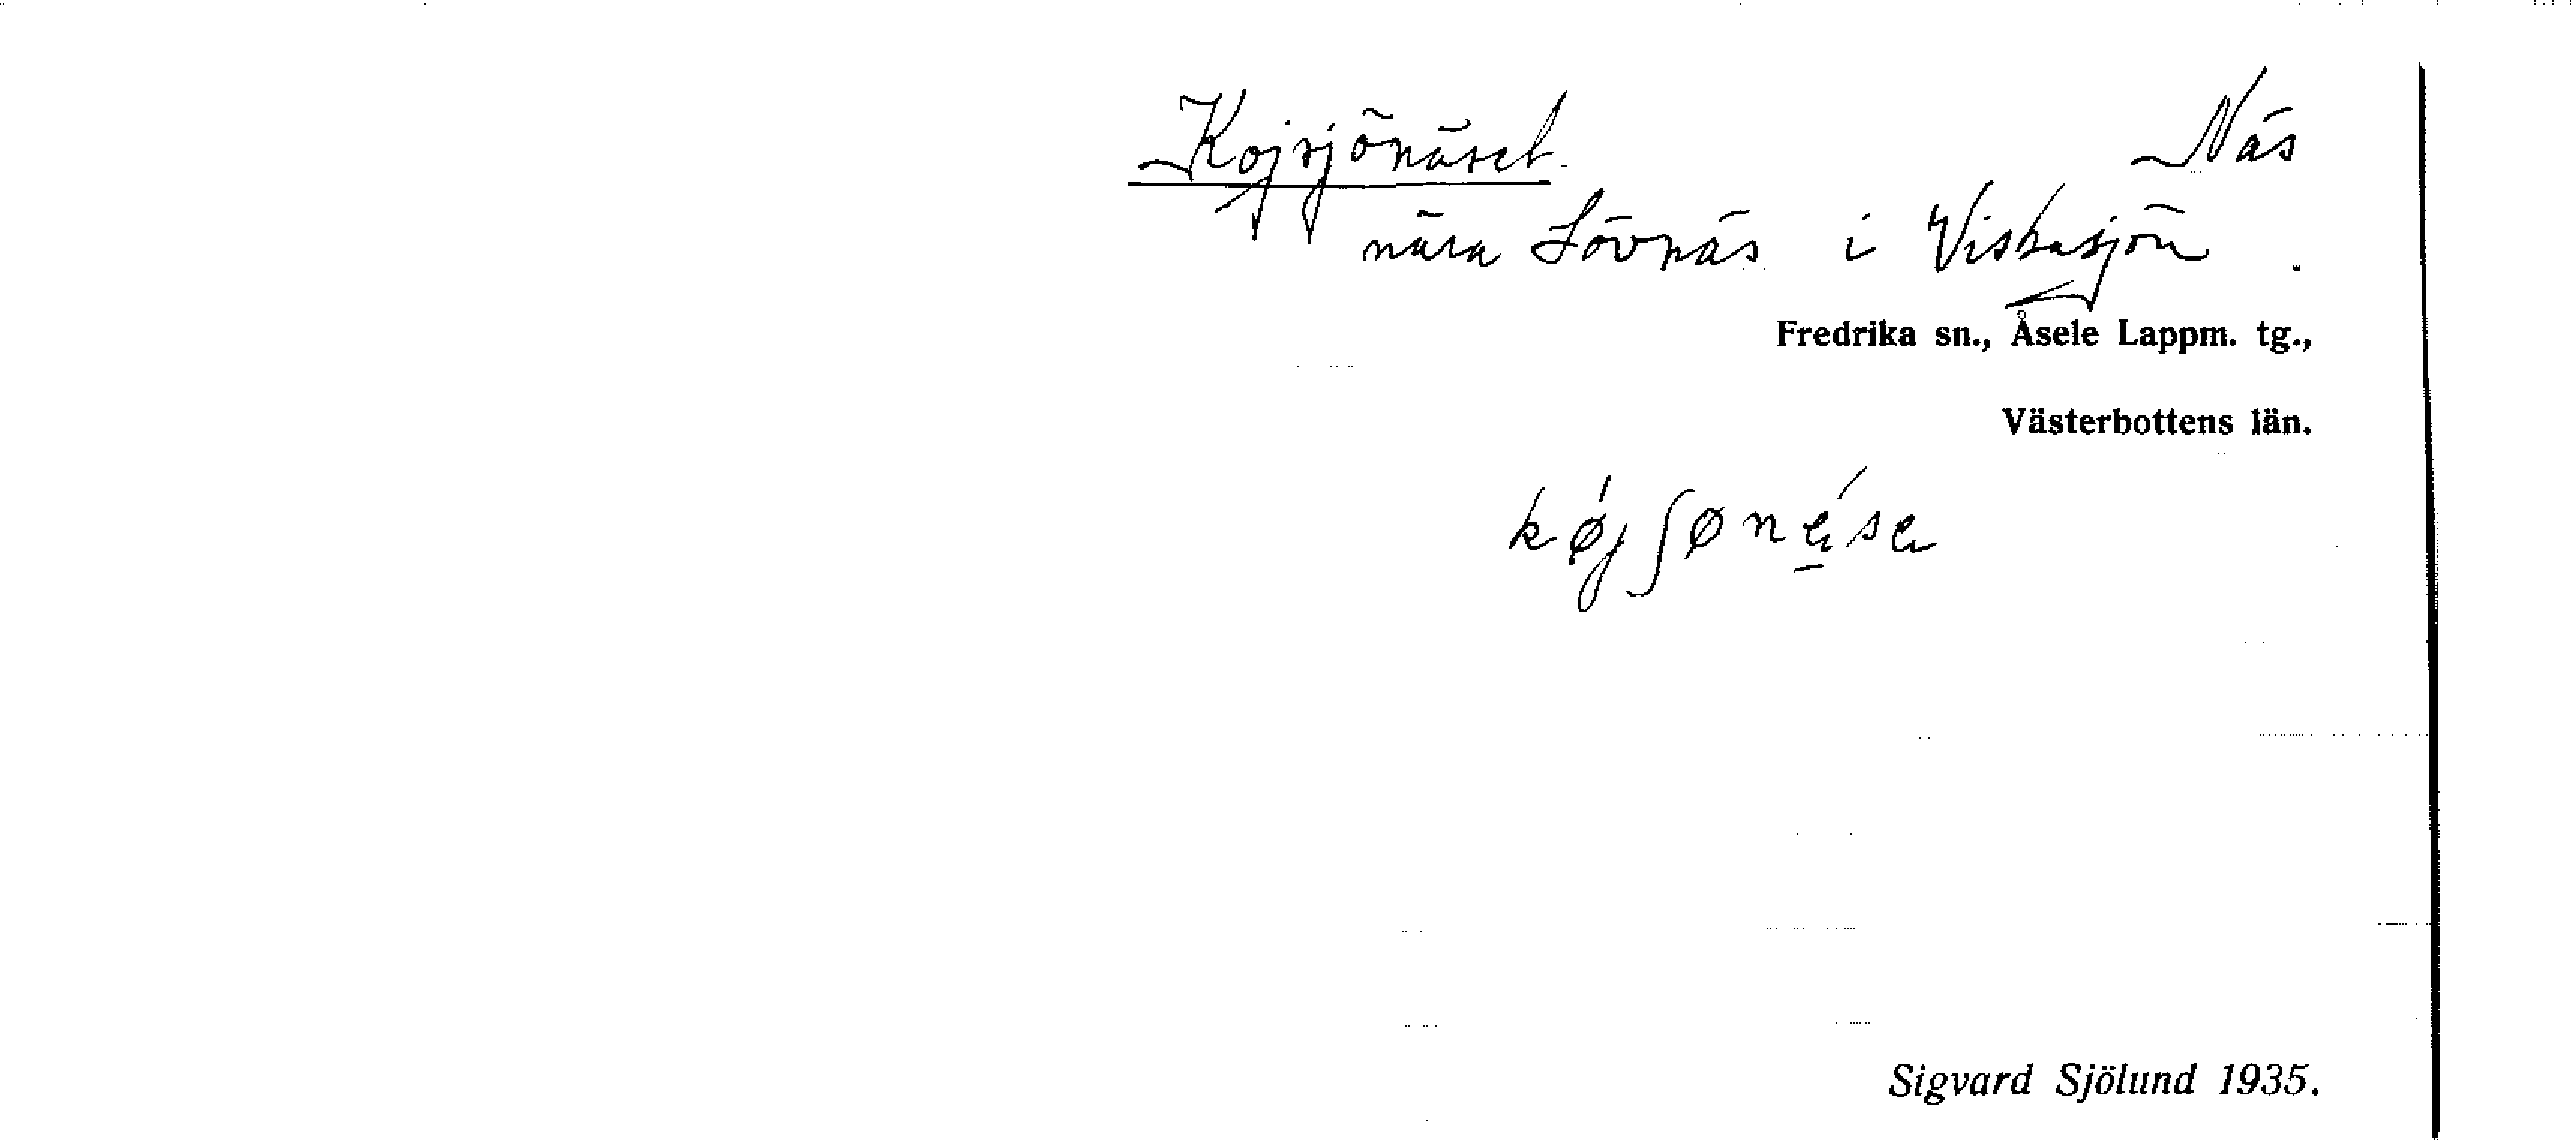 Kojsjönäset. Näs
nära Lövnäs i Viskasjön.
Fredrika sn., Åsele Lappm. tg.,
Västerbottens län.
kǿjʃønése
Sigvard Sjölund 1935.